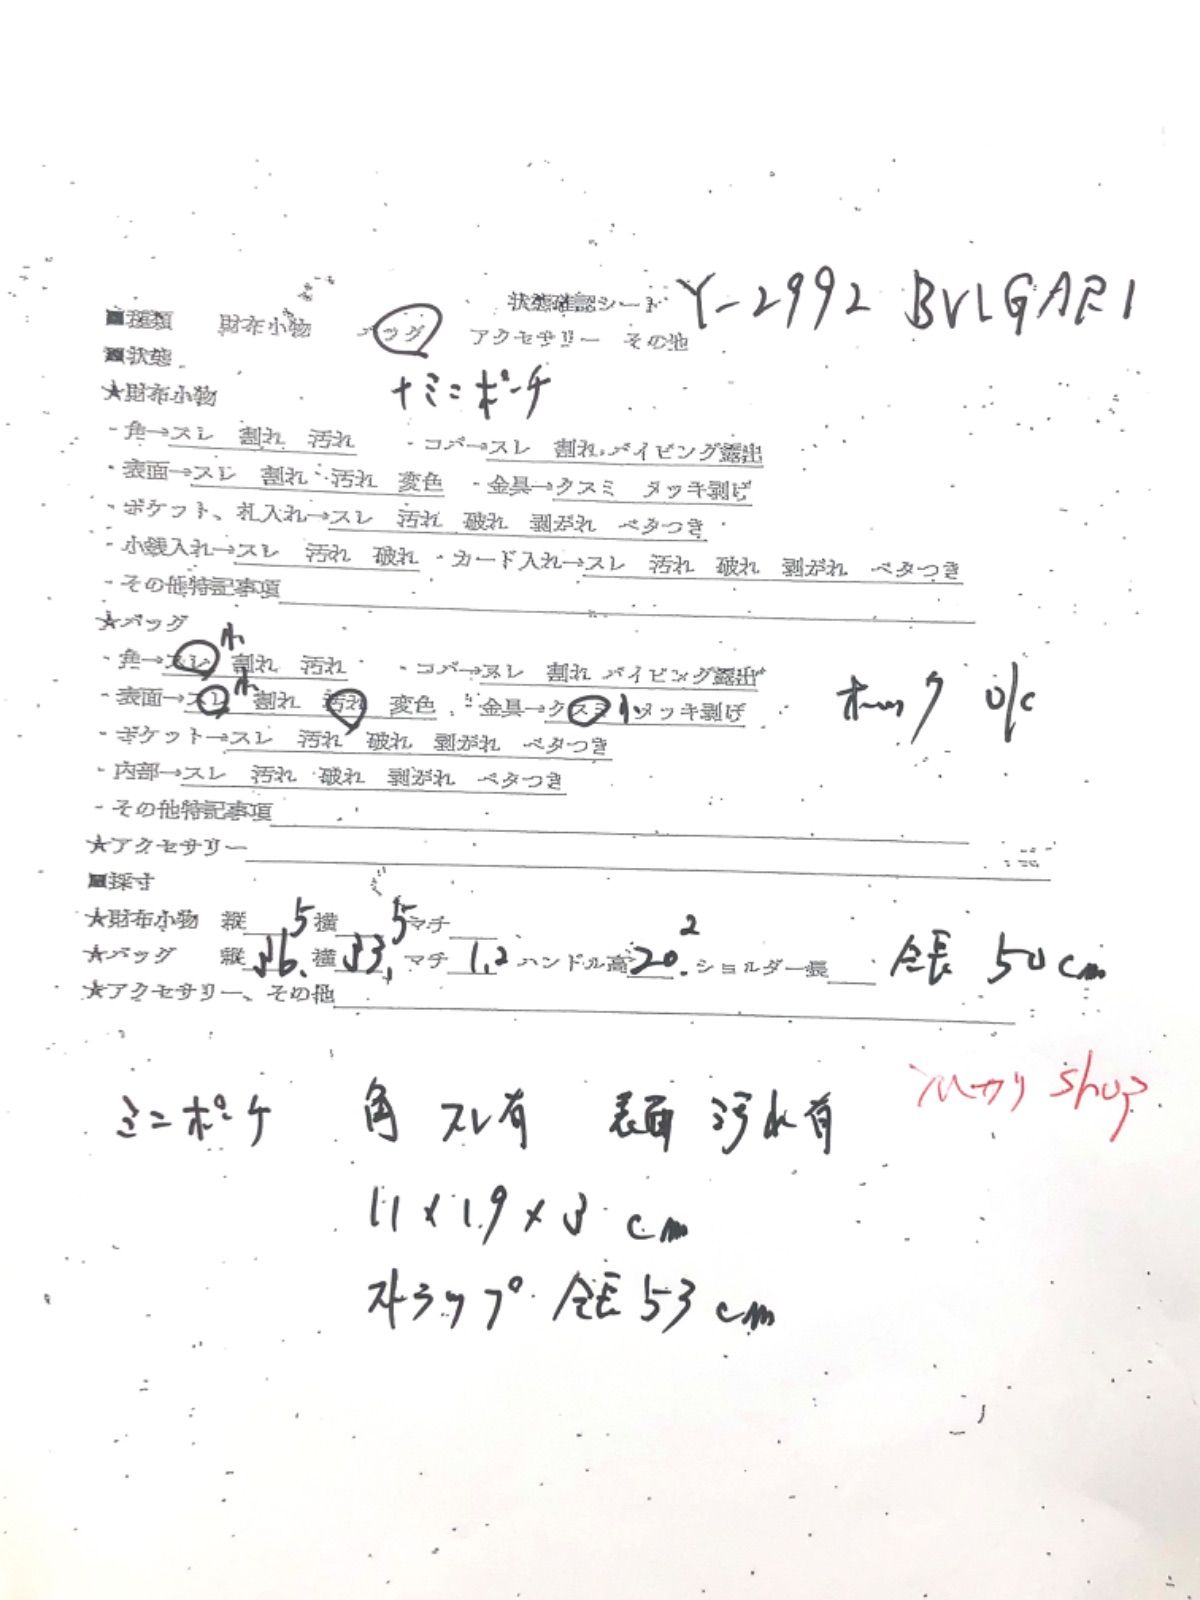 状態確認シート Y-2992 BVLGARI
■種類 財布小物 バッグ アクセサリー その他
■状態
+ミニポーチ
★財布小物
・角→スレ 割れ 汚れ ・コバ→スレ 割れ パイピング露出
・表面→スレ 割れ 汚れ 変色 ・金具→クスミ メッキ剥げ
・ポケット、札入れ→スレ 汚れ 破れ 剥がれ ベタつき
・小銭入れ→スレ 汚れ 破れ ・カード入れ→スレ 汚れ 破れ 剥がれ ベタつき
・その他特記事項
★バッグ
・角→スレ小 割れ 汚れ ・コバ→スレ 割れ パイピング露出
・表面→スレ小 割れ 汚れ 変色 ・金具→クスミ小 メッキ剥げ ホック O/C
・ポケット→スレ 汚れ 破れ 剥がれ ベタつき
・内部→スレ 汚れ 破れ 剥がれ ベタつき
・その他特記事項
★アクセサリー
■採寸
★財布小物 縦 横 マチ
★バッグ 縦36.5 横33.5 マチ 12 ハンドル高20.2 ショルダー長 全長 50cm
★アクセサリー、その他
メルカリ shop
ミニポーチ 角 スレ有 表面 汚れ有
11×19×3 cm
ストラップ 全長 53 cm